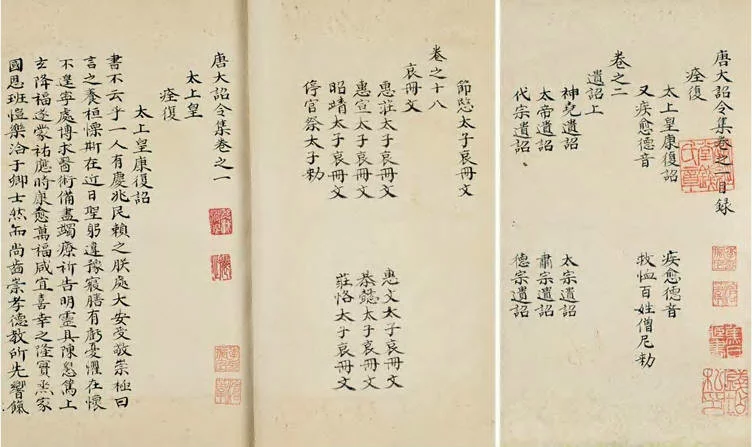 唐大詔令集卷之一目録
痊復
太上皇康復詔
疾愈德音
又疾愈德音
救恤百姓僧尼勑
卷之二
遺詔上
神堯遺詔
太宗遺詔
大帝遺詔
肅宗遺詔
代宗遺詔
德宗遺詔
節愍太子哀冊文
卷之十八
哀冊文
惠莊太子哀冊文
惠文太子哀冊文
惠宣太子哀冊文
恭懿太子哀冊文
昭靖太子哀冊文
莊恪太子哀冊文
停官祭太子勑
唐大詔令集卷之一
太上皇
痊復
太上皇康復詔
書不云乎一人有慶兆民賴之朕處大安受敬崇極曰
言之養桓慄斯在近日聖躬違豫寢膳有虧憂懼在懷
不遑寧處博求醫術備盡蠲療祈告明靈具陳懇篤上
玄降福遂蒙祐應時康愈萬福咸宜喜幸之隆實焘家
國思班愷樂洽于卿士然而尚齒崇孝德教所先饗